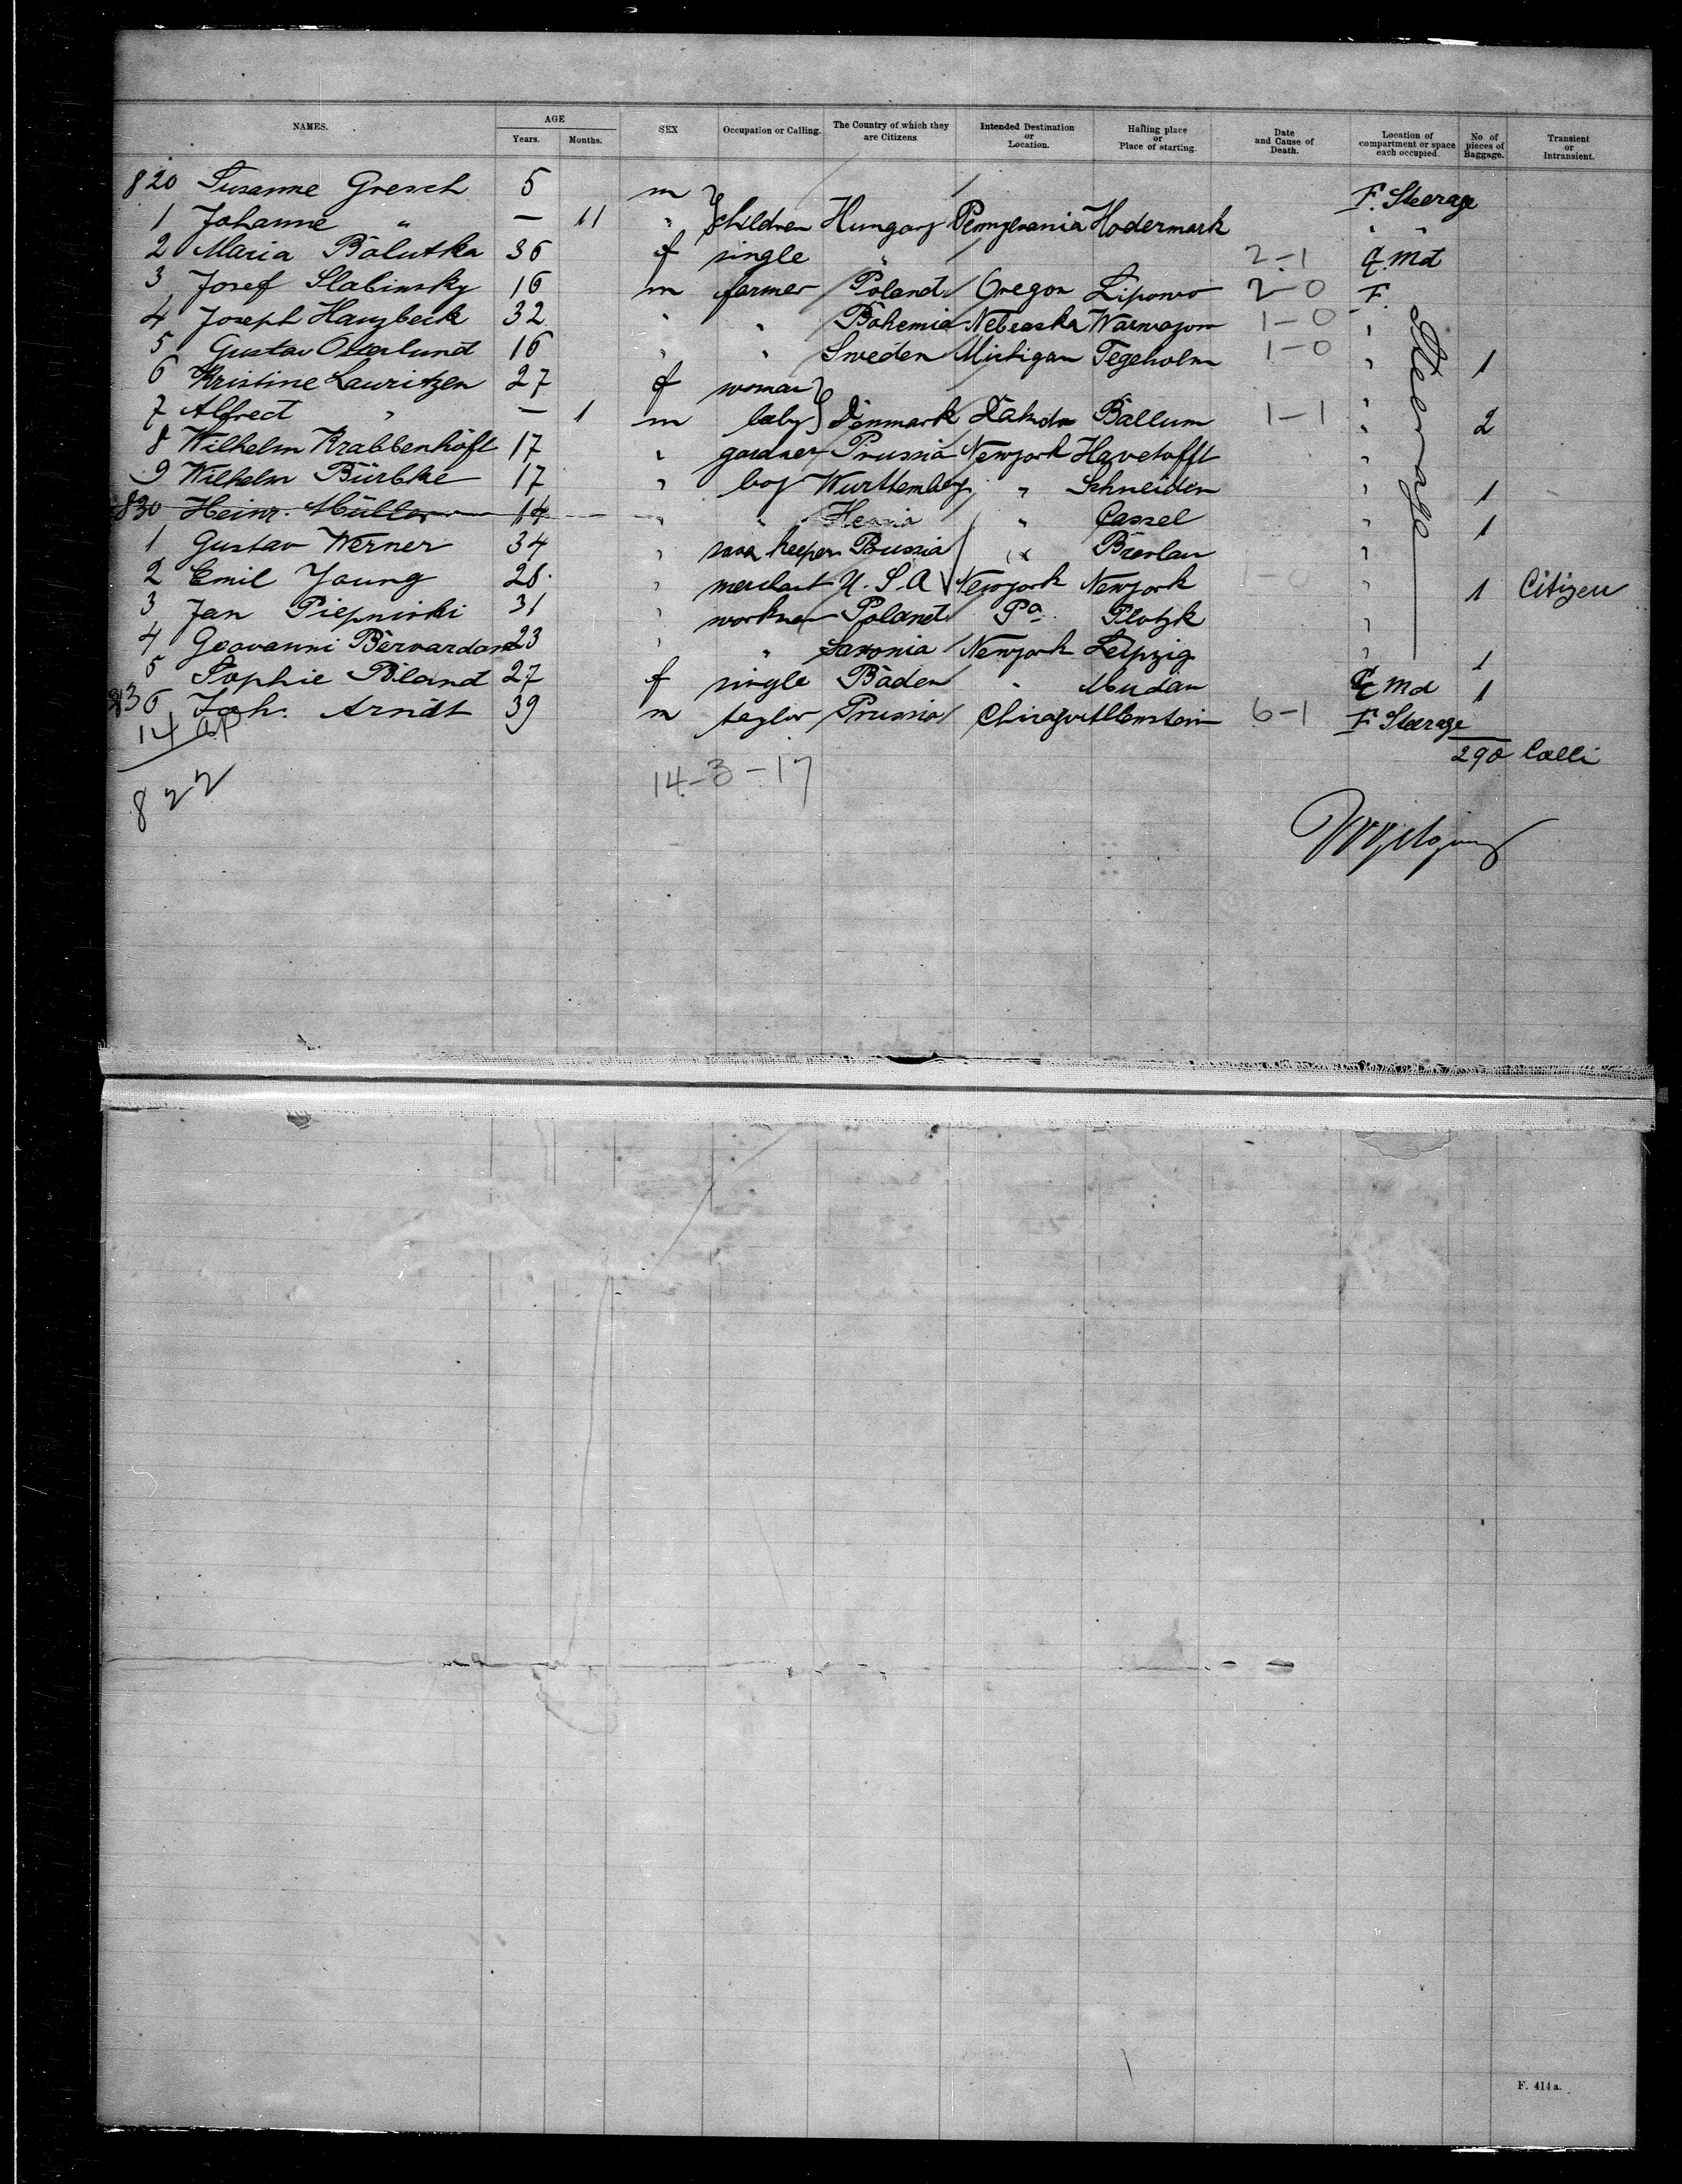 NAMES. AGE Years. Months. SEX Occupation or Calling. The Country of which they are Citizens. Intended Destination or Location. Hailing place or Place of starting. Date and Cause of Death. Location of compartment or space each occupied. No. of pieces of Baggage. Transient or Intransient.
820 Susanne Gresch 5 m F. Steerage
1 Johanne " — 11 " children Hungary Pennsylvania Hodermark " "
2 Maria Balutka 36 f single " 2-1 Md
3 Josef Slabinsky 16 m farmer Poland Oregon Lipowo 2-0 F. Steerage
4 Joseph Hanzbeck 32 " " Bohemia Nebraska 1-0 "
5 Gustav Osterlund 16 " " Sweden Michigan Tegeholm 1-0 " 1
6 Kristine Lauritzen 27 f woman "
7 Alfred " — 1 m baby Denmark Dakota Ballum 1-1 " 2
8 Wilhelm Krabbenhöft 17 " gardner Prussia Newyork Havetofft "
9 Wilhelm Bürbke 17 " boy Wurttemberg " Schneiden " 1
830 Heinr. Müller 14 " " Hessia " Cassel " 1
1 Gustav Werner 34 " keeper Prussia " Breslau "
2 Emil Young 28 " merchant U. S. A Newyork Newyork 1-0 " 1 Citizen
3 Jan Piepnirski 31 " workman Poland Pa Plotzk "
4 Geovanni Bernardon 23 " " Saxonia Newyork Leipzig " 1
5 Sophie Bland 27 f single Baden " Mudau Md 1
836 Joh. Arndt 39 m taylor Prussia Chicago Allenstein 6-1 F. Steerage
14
290 Colli
822
14-3-17
F. 414a.